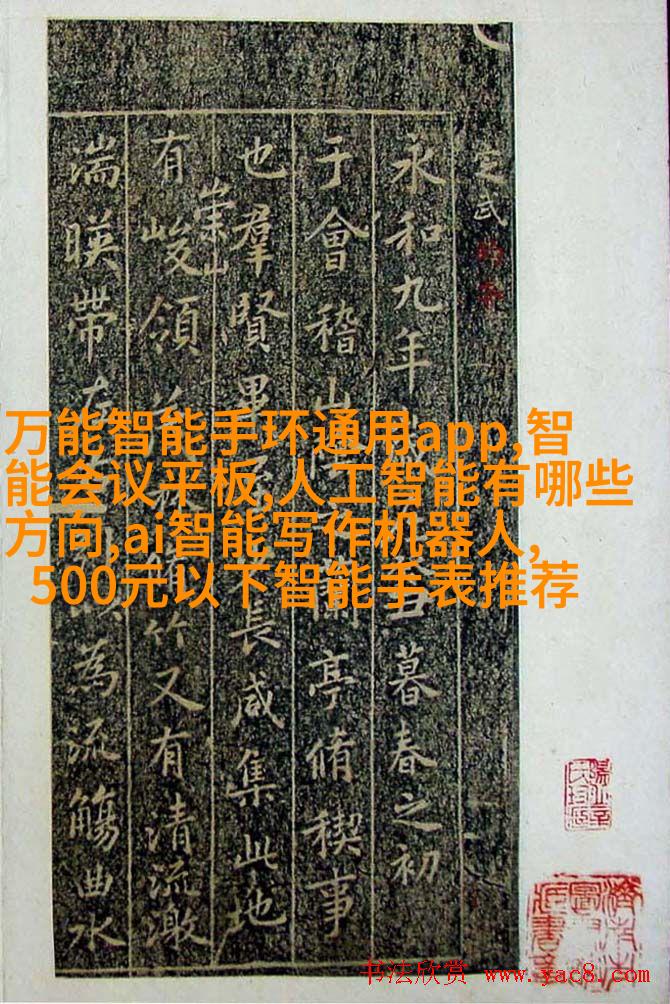 定武
永和九年暮春之初
于會稽山亭脩稧事
也羣賢畢長咸集此地
有崇山峻領竹又有清流激
湍暎帶為流觴曲水
万能智能手环通用app,智
能会议平板,人工智能有哪些
方向,ai智能写作机器人,
500元以下智能手表推荐
书法欣赏 www.yac8.com